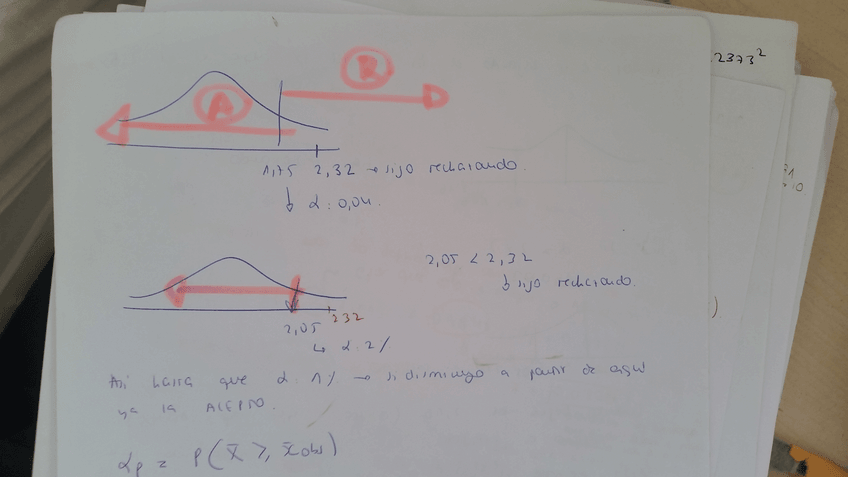 A
R
1,75 2,32 → sijo rechazando.
↓ α = 0,04.
2,05 < 2,32
↓ sijo rechazando.
2,05 232
↳ α = 2%
Así hasta que α = 1% → si disminuyo a partir de aquí
ya la ACEPTO.
αp = P(X̄ ⩾ x̄obs)
.2373²